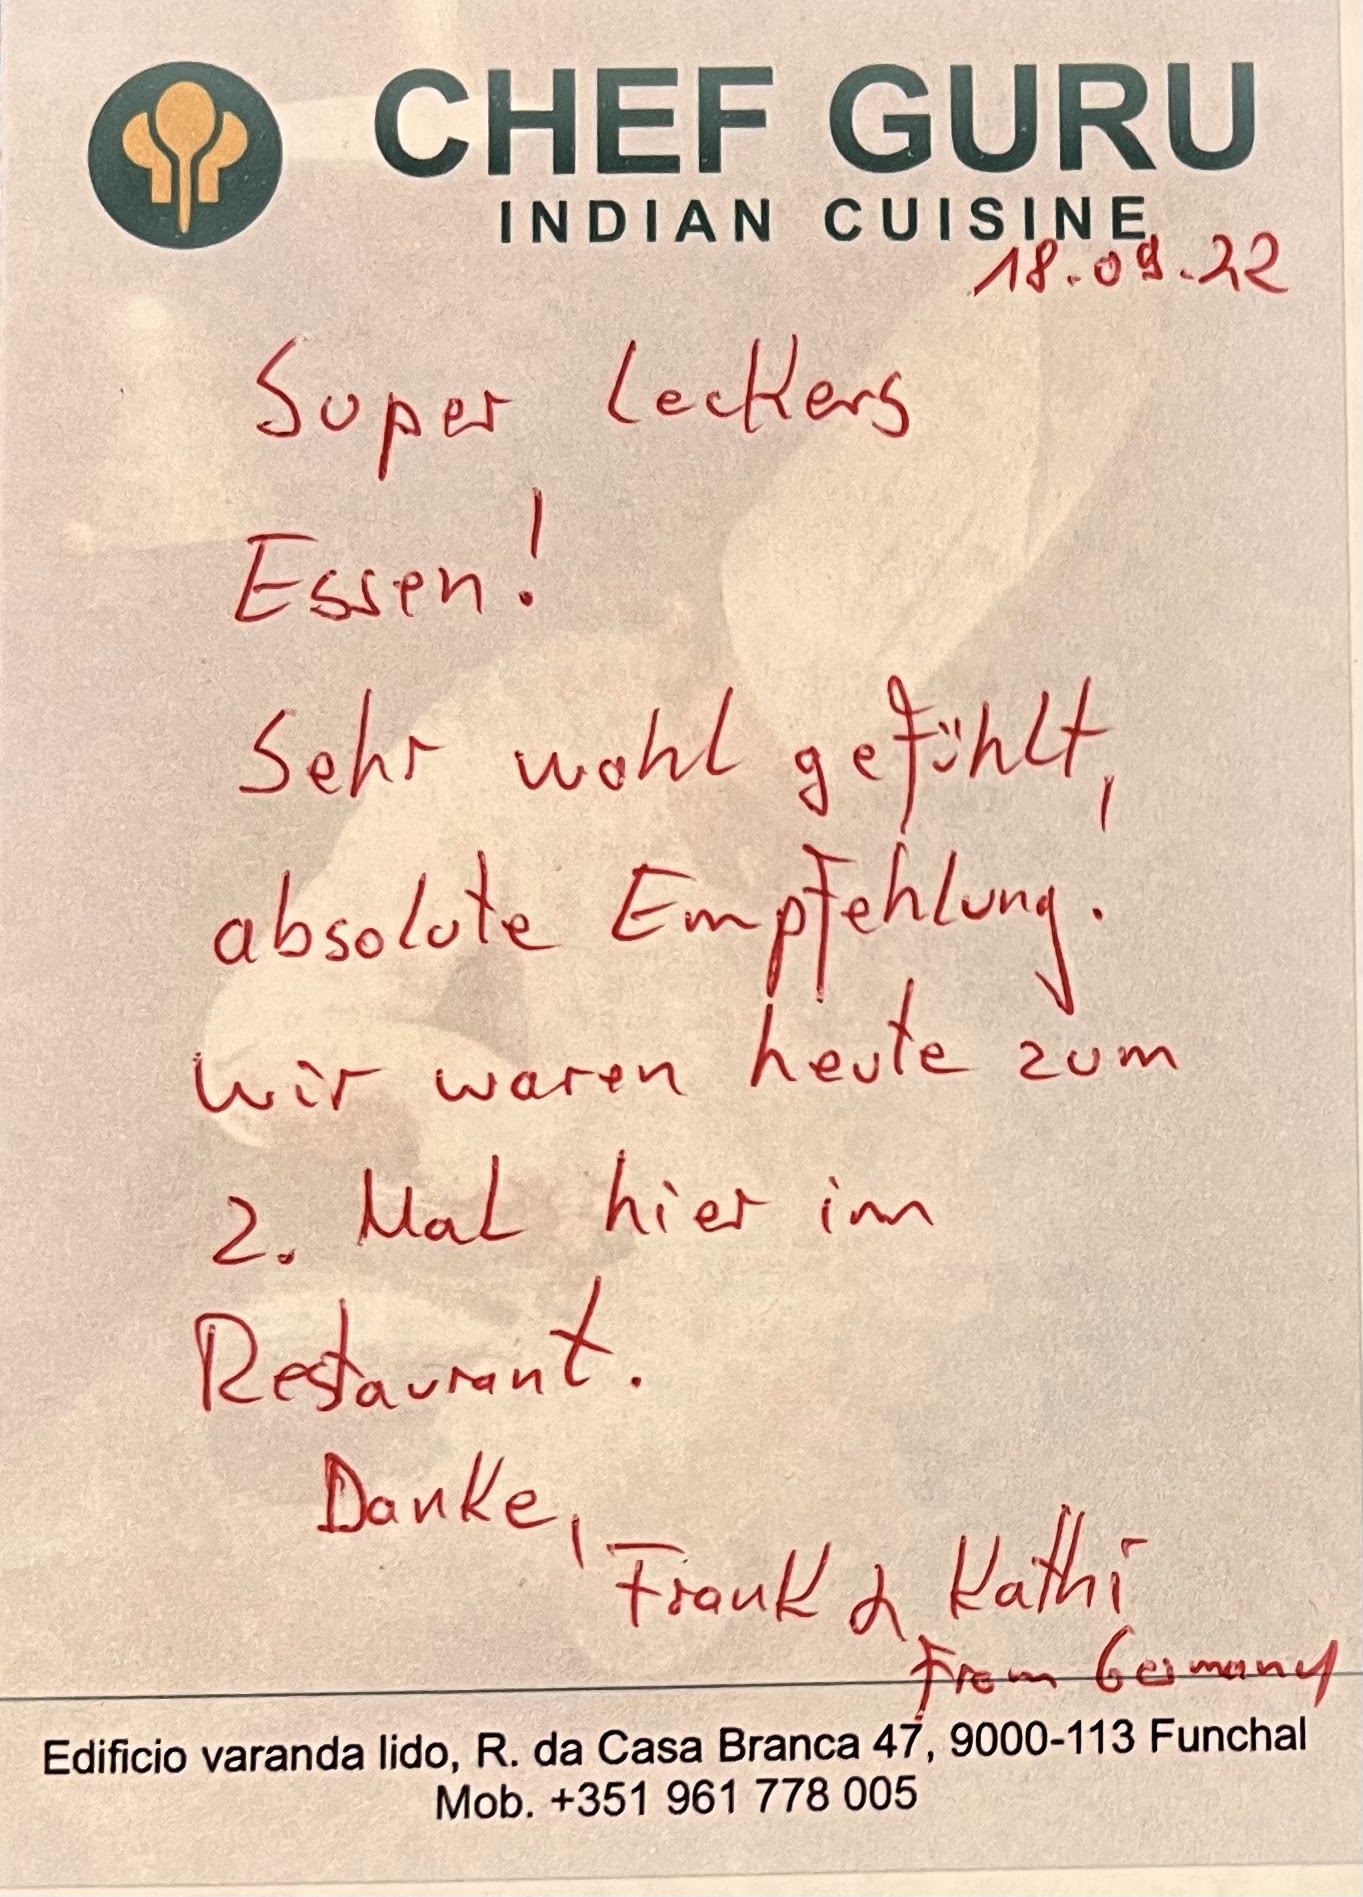 CHEF GURU
INDIAN CUISINE
18.09.22
Super leckers
Essen!
Sehr wohl gefühlt,
absolute Empfehlung.
wir waren heute zum
2. Mal hier im
Restaurant.
Danke,
Frank & Kathi
From Germany
Edificio varanda lido, R. da Casa Branca 47, 9000-113 Funchal
Mob. +351 961 778 005